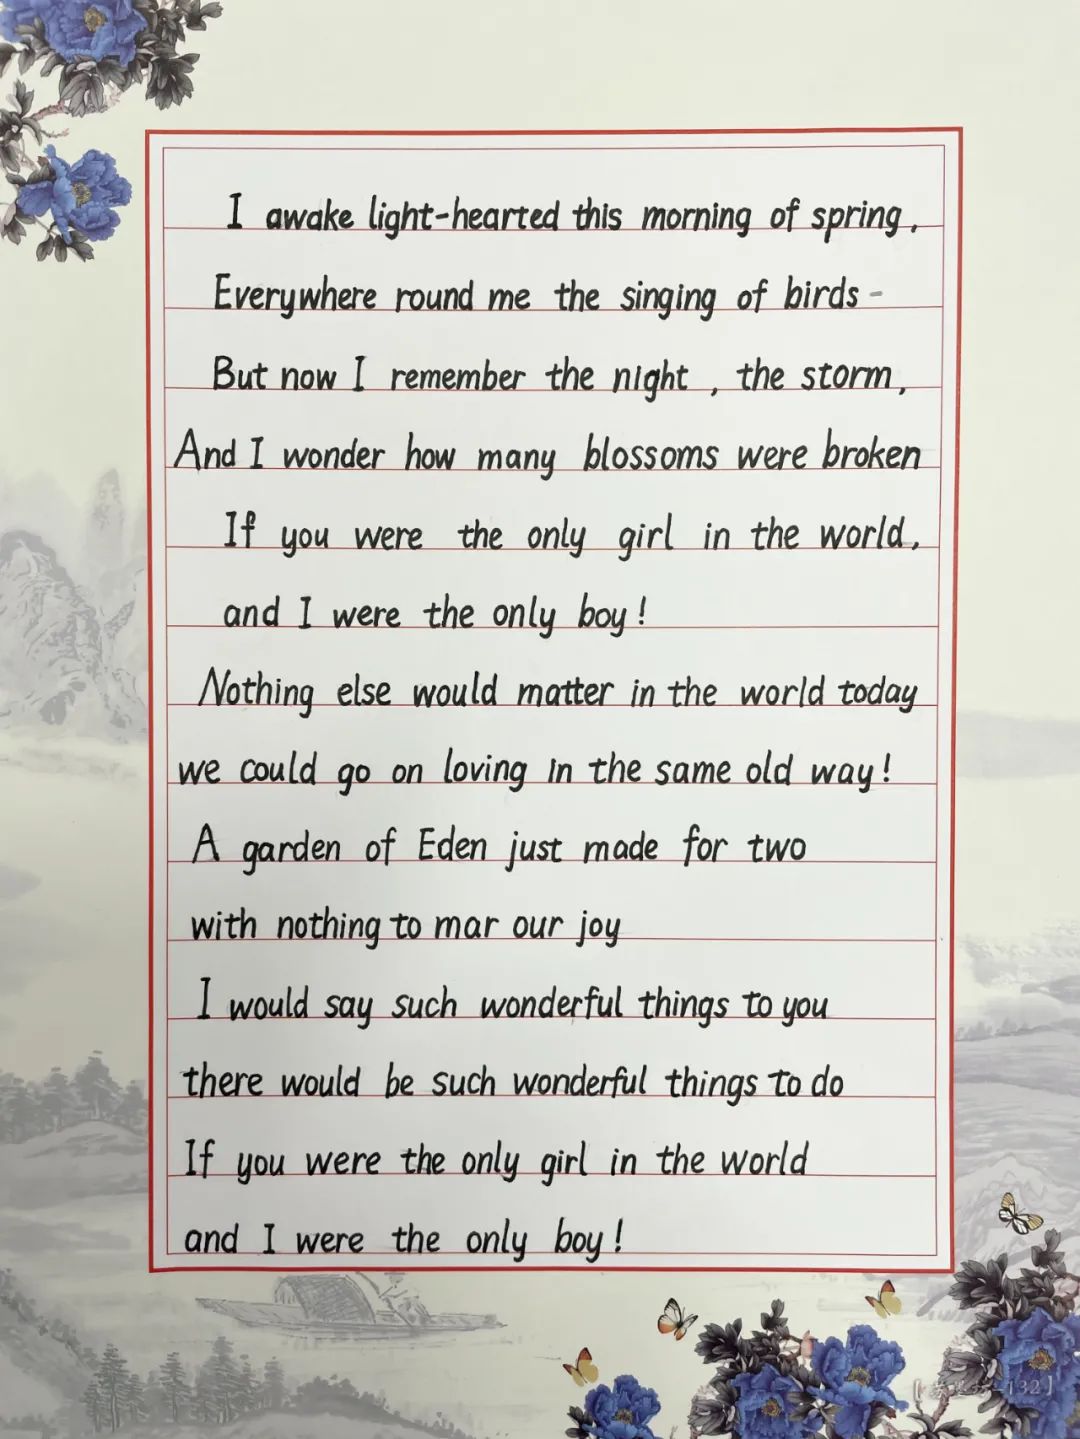 I awake light-hearted this morning of spring,
Everywhere round me the singing of birds -
But now I remember the night , the storm,
And I wonder how many blossoms were broken
If you were the only girl in the world,
and I were the only boy!
Nothing else would matter in the world today
we could go on loving in the same old way!
A garden of Eden just made for two
with nothing to mar our joy
I would say such wonderful things to you
there would be such wonderful things to do
If you were the only girl in the world
and I were the only boy!
132】